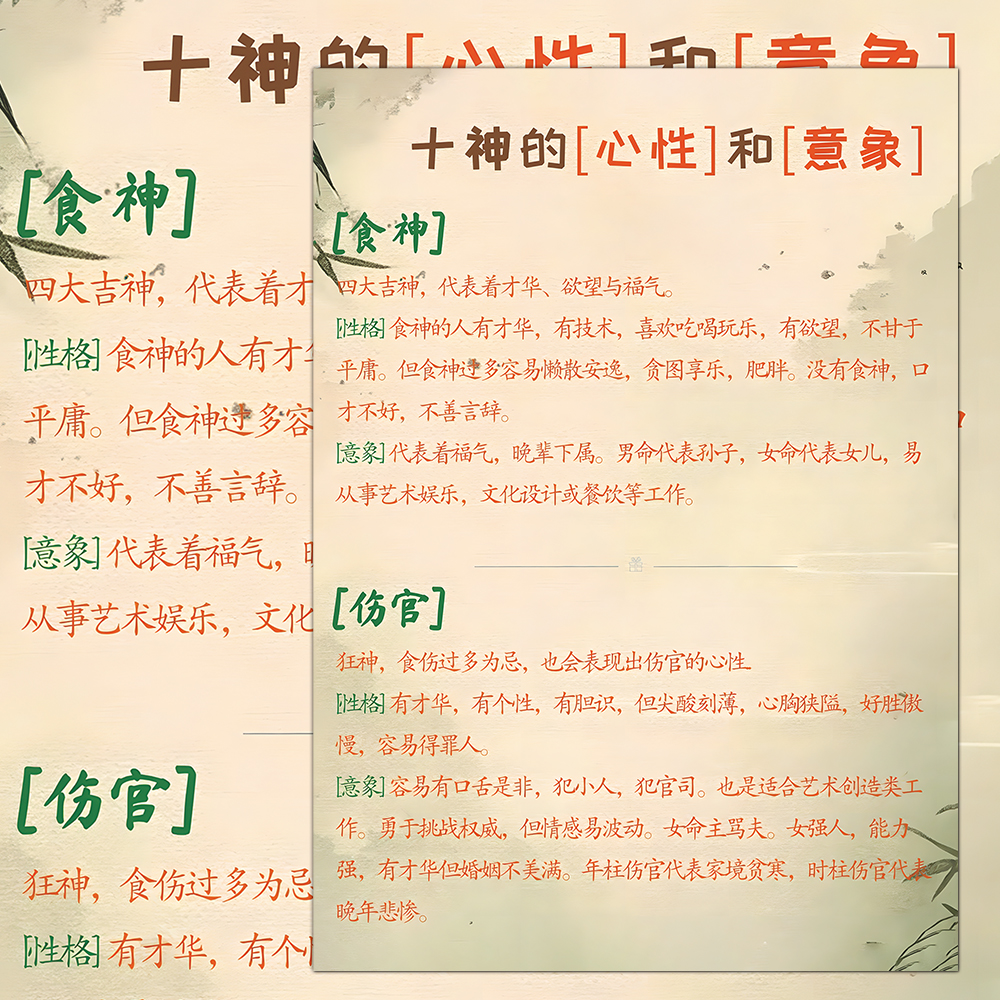 十神的[心性]和[意象]
[食神]
四大吉神，代表着才
[性格]食神的人有才华
平庸。但食神过多容
才不好，不善言辞。
[意象]代表着福气，
从事艺术娱乐，文化
[伤官]
狂神，食伤过多为忌
[性格]有才华，有个
十神的[心性]和[意象]
[食神]
四大吉神，代表着才华、欲望与福气。
[性格]食神的人有才华，有技术，喜欢吃喝玩乐，有欲望，不甘于
平庸。但食神过多容易懒散安逸，贪图享乐，肥胖。没有食神，口
才不好，不善言辞。
[意象]代表着福气，晚辈下属。男命代表孙子，女命代表女儿，易
从事艺术娱乐，文化设计或餐饮等工作。
[伤官]
狂神，食伤过多为忌，也会表现出伤官的心性
[性格]有才华，有个性，有胆识，但尖酸刻薄，心胸狭隘，好胜傲
慢，容易得罪人。
[意象]容易有口舌是非，犯小人，犯官司。也是适合艺术创造类工
作。勇于挑战权威，但情感易波动。女命主骂夫。女强人，能力
强，有才华但婚姻不美满。年柱伤官代表家境贫寒，时柱伤官代表
晚年悲惨。